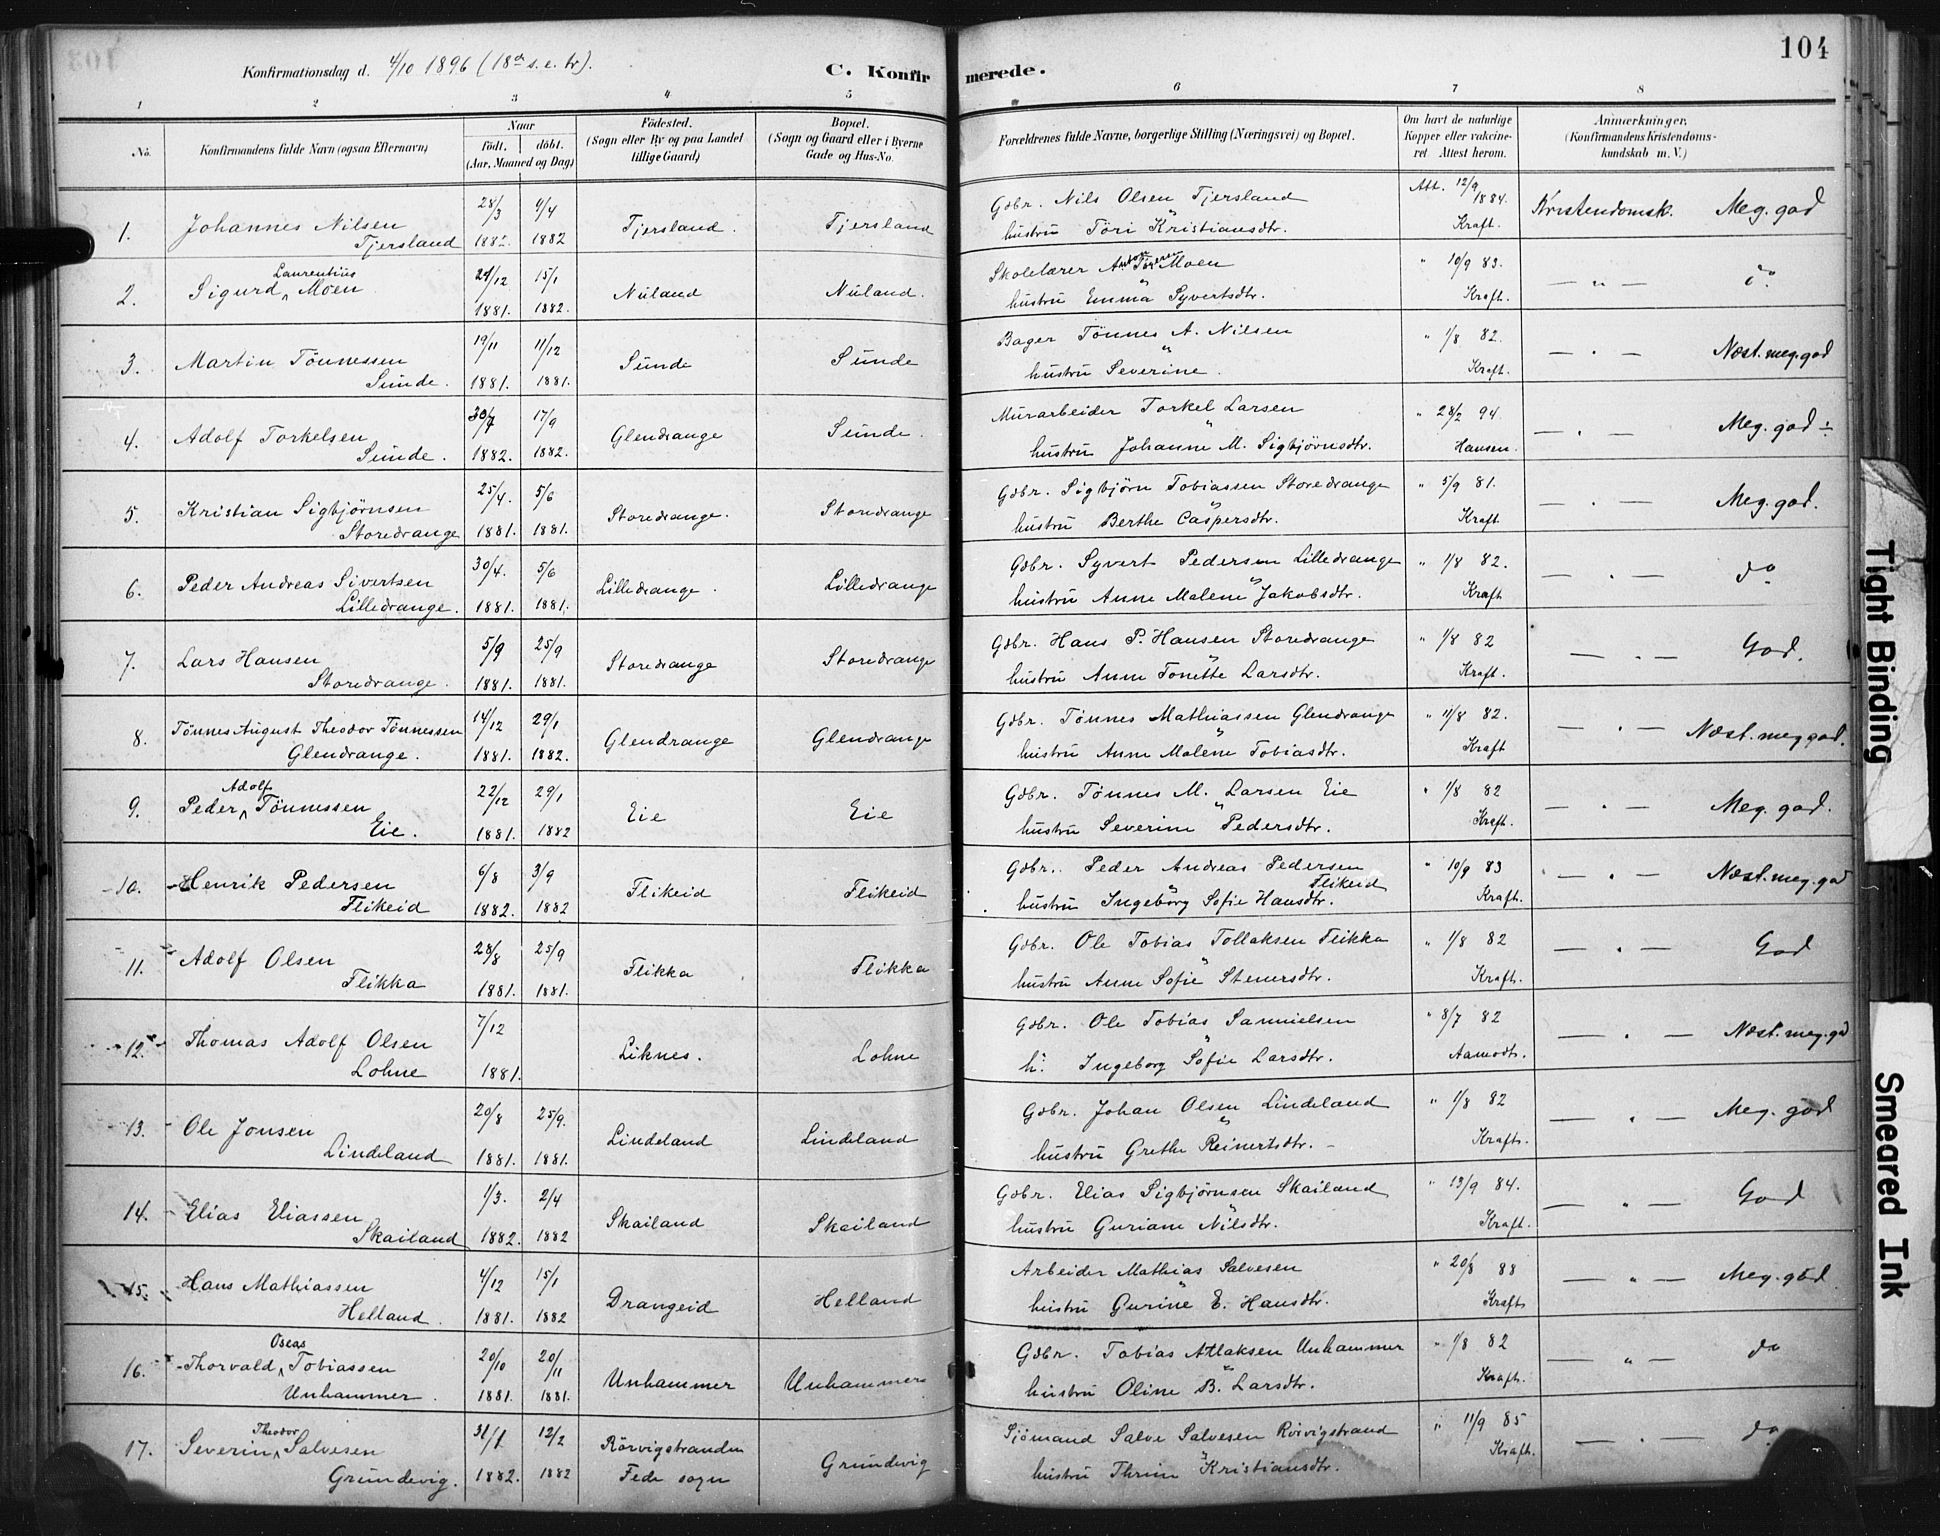 104
Konfirmationsdag d. 4/10 1896 (18de s. e. tr).
C. Konfirmerede.
1 2 3 4 5 6 7 8
No.
Konfirmandens fulde Navn (ogsaa Efternavn)
Naar
født. døbt.
(Aar, Maaned og Dag)
Fødested.
(Sogn eller By og paa Landet
tillige Gaard)
Bopæl.
(Sogn og Gaard eller i Byerne
Gade og Hus-No.
Forældrenes fulde Navne, borgerlige Stilling (Næringsvei) og Bopæl.
Om havt de naturlige
Kopper eller vakcine-
ret. Attest herom.
Anmærkninger.
(Konfirmandens Kristendoms-
kundskab m. V.)
1. Johannes Nilsen 28/3 9/4 Tjersland. Tjersland Gdbr. Nils Olsen Tjersland Att. 12/9 1884. Kristendomsk. Meg. god
Tjersland 1882. 1882 hustru Tori Kristiansdtr. Kraft.
2. Sigurd Laurentius Moen 29/12 15/1 Nuland Nuland. Skolelærer Anton Moen " 10/9 83. — " — do
1881. 1882. hustru Emma Syvertsdtr. Kraft.
3. Martin Tönnessen 19/11 11/12 Sunde Sunde Bager Tönnes A. Nilsen " 1/8 82. — " — Næst. meg. god
Sunde. 1881. 1881. hustru Severine. Kraft.
4. Adolf Torkelsen 30/7 17/9 Glendrange Sunde. Murarbeider Torkel Larsen " 28/2 94. — " — Meg. god ÷
Sunde. 1882. 1882. hustru Johanne M. Sigbjörnsdtr. Hansen.
5. Kristian Sigbjörnsen 25/4. 5/6 Storedrange. Storedrange Gdbr. Sigbjörn Tobiassen Storedrange " 5/9 81. — " — Meg. god.
Storedrange 1881. 1881. hustru Berthe Caspersdtr. Kraft
6. Peder Andreas Sivertsen 30/4. 5/6 Lilledrange. Lilledrange Gdbr. Syvert Pedersen Lilledrange " 1/8 82. — " — do
Lilledrange. 1881. 1881. hustru Anne Malene Jakobsdtr. Kraft
7. Lars Hansen 5/9 25/9 Storedrange Storedrange Gdbr. Hans P. Hansen Storedrange " 1/8 82 — " — God.
Storedrange. 1881. 1881. hustru Anne Tonette Larsdtr. Kraft.
8. Tönnes August Theodor Tönnessen 14/12 29/1 Glendrange Glendrange Gdbr. Tönnes Mathiassen Glendrange " 11/8 82. — " — Næst. meg god.
Glendrange. 1881. 1882. hustru Anne Malene Tobiasdtr. Kraft
9. Peder Adolf Tönnessen 22/12 29/1 Eie Eie Gdbr. Tönnes M. Larsen Eie " 1/8 82 — " — Meg. god.
Eie. 1881. 1882 hustru Severine Pedersdtr. Kraft.
10. Henrik Pedersen 6/8 3/9 Flikeid Flikeid Gdbr. Peder Andreas Pedersen Flikeid " 10/9 83 — " — Næst. meg. god
Flikeid 1882. 1882 hustru Ingeborg Sofie Hansdtr. Kraft.
11. Adolf Olsen 28/8 25/9 Flikka Flikka Gdbr. Ole Tobias Tollaksen Flikka " 1/8 82 — " — God
Flikka 1881. 1881. hustru Anne Sofie Stenersdtr. Kraft.
12. Thomas Adolf Olsen 7/12 Liknes. Lohne Gdbr. Ole Tobias Samuelsen " 8/7 82 — " — Næst. meg. god
Lohne 1881. h: Ingeborg Sofie Larsdtr. Aamodt.
13. Ole Jonsen 20/8 25/9. Lindeland Lindeland Gdbr. Johan Olsen Lindeland " 1/8 82 — " — Meg. god
Lindeland 1881. 1881. hustru Grethe Reinertsdtr. Kraft.
14. Elias Eliassen 1/3. 2/4 Skailand Skailand Gdbr. Elias Sigbjörnsen Skailand " 13/9 84. — " — God
Skailand 1882. 1882 hustru Guriane Nilsdtr. Kraft.
15. Hans Mathiassen 4/12 15/1 Drangeid Helland Arbeider Mathias Salvesen " 20/8 88 — " — Meg. god
Helland. 1881. 1882 hustru Gurine E. Hansdtr. Kraft
16. Thorvald Oseas Tobiassen 20/10 20/11 Unhammer Unhammer Gdbr. Tobias Atlaksen Unhammer " 1/8 82 — " — do
Unhammer. 1881. 1881. hustru Oline B. Larsdtr. Kraft.
17. Severin Theodor Salvesen 31/1 12/2 Rörvigstranden Grundevig Sjömand Salve Salvesen Rörvigstrand " 11/9 85 — " — do
Grundevig. 1882. 1882 Fede sogn hustru Thrine Kristiansdtr. Kraft.
Tight Binding
Smeared Ink